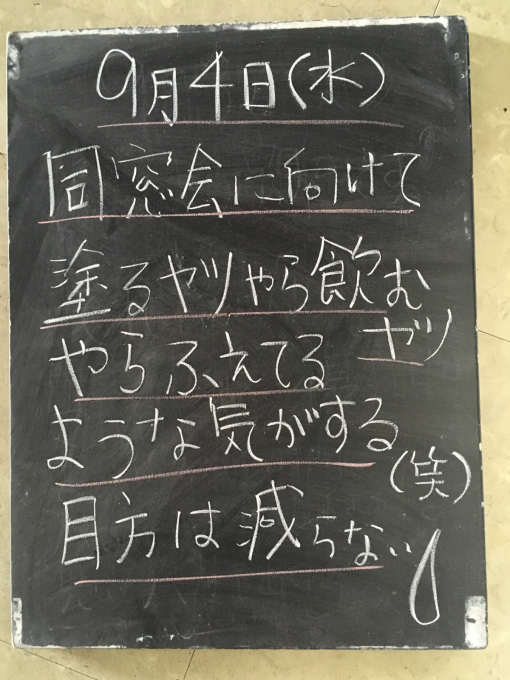 9月4日(水)
同窓会に向けて
塗るヤツやら飲む
ヤツ
やらふえてる
ような気がする
(笑)
目方は減らない